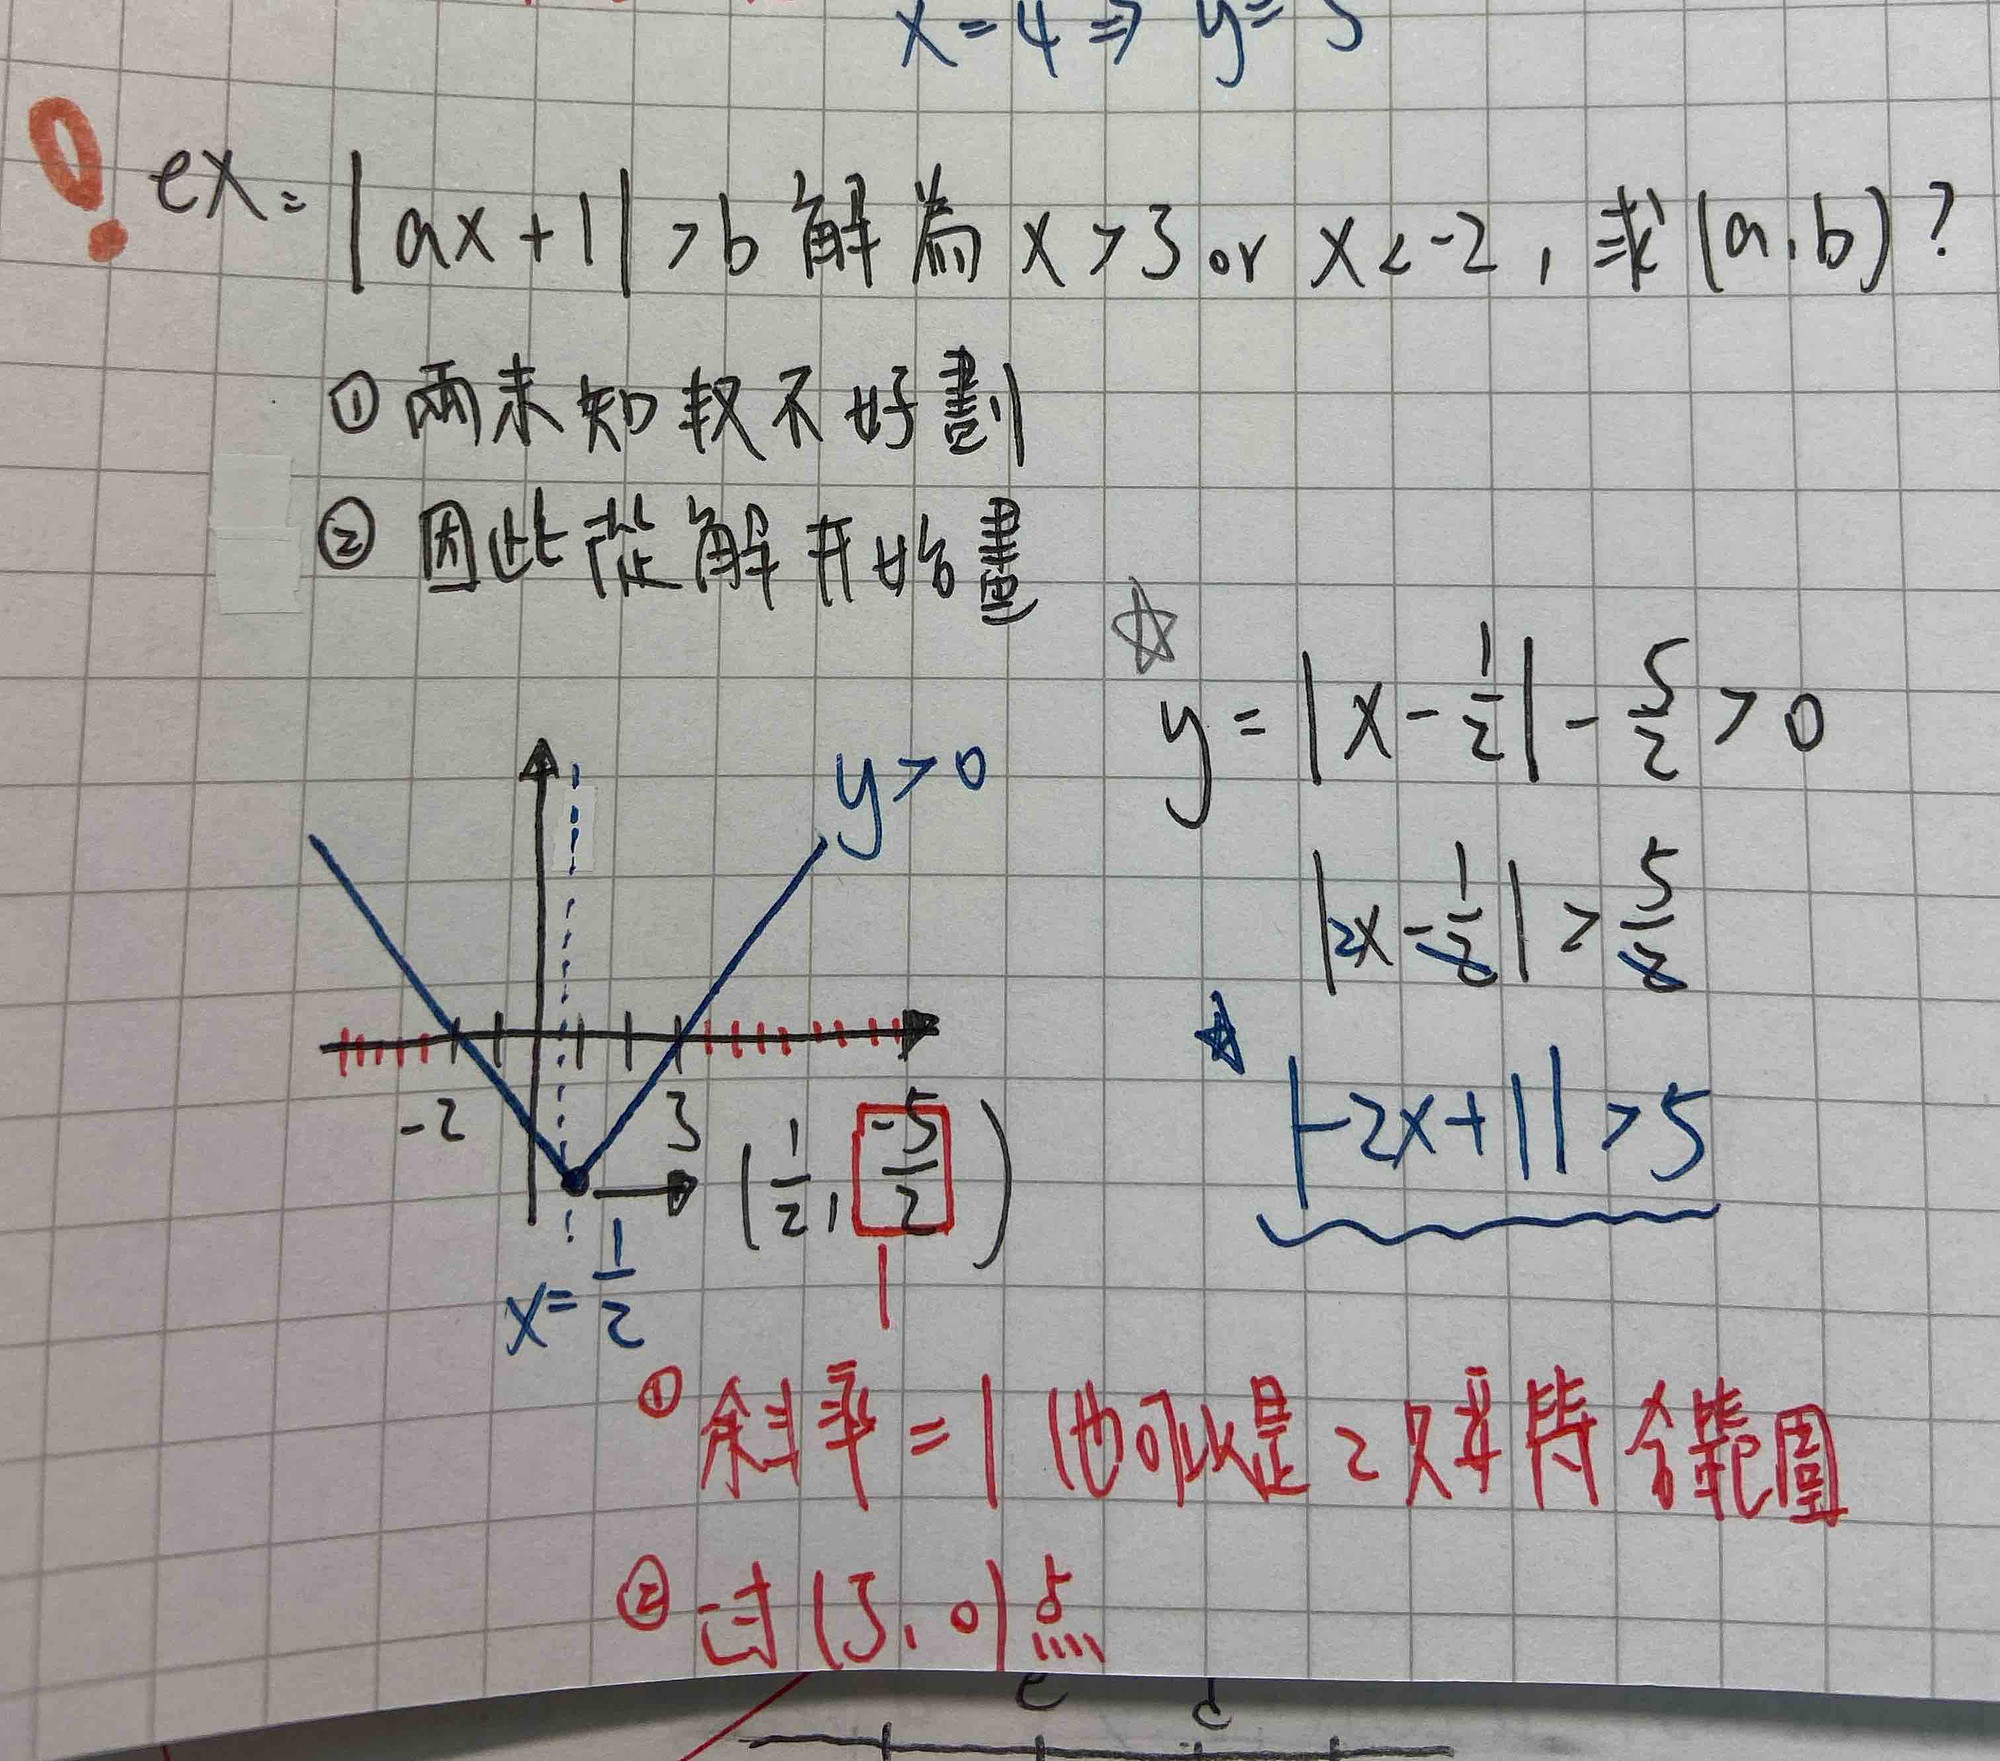 x=4 ⇒ y=5
ex: |ax+1|>b 解為 x>3 or x<-2, 求(a,b)?
① 兩未知数不好劃
② 因此從解开始畫
☆
y=|x-1/2|-5/2>0
|2x-1/2|>5/2
★ |-2x+1|>5
y>0
-2 3
(1/2, -5/2)
x=1/2
① 斜率=1 (也可以是2只要符合範圍
② 过(3,0)点
e d